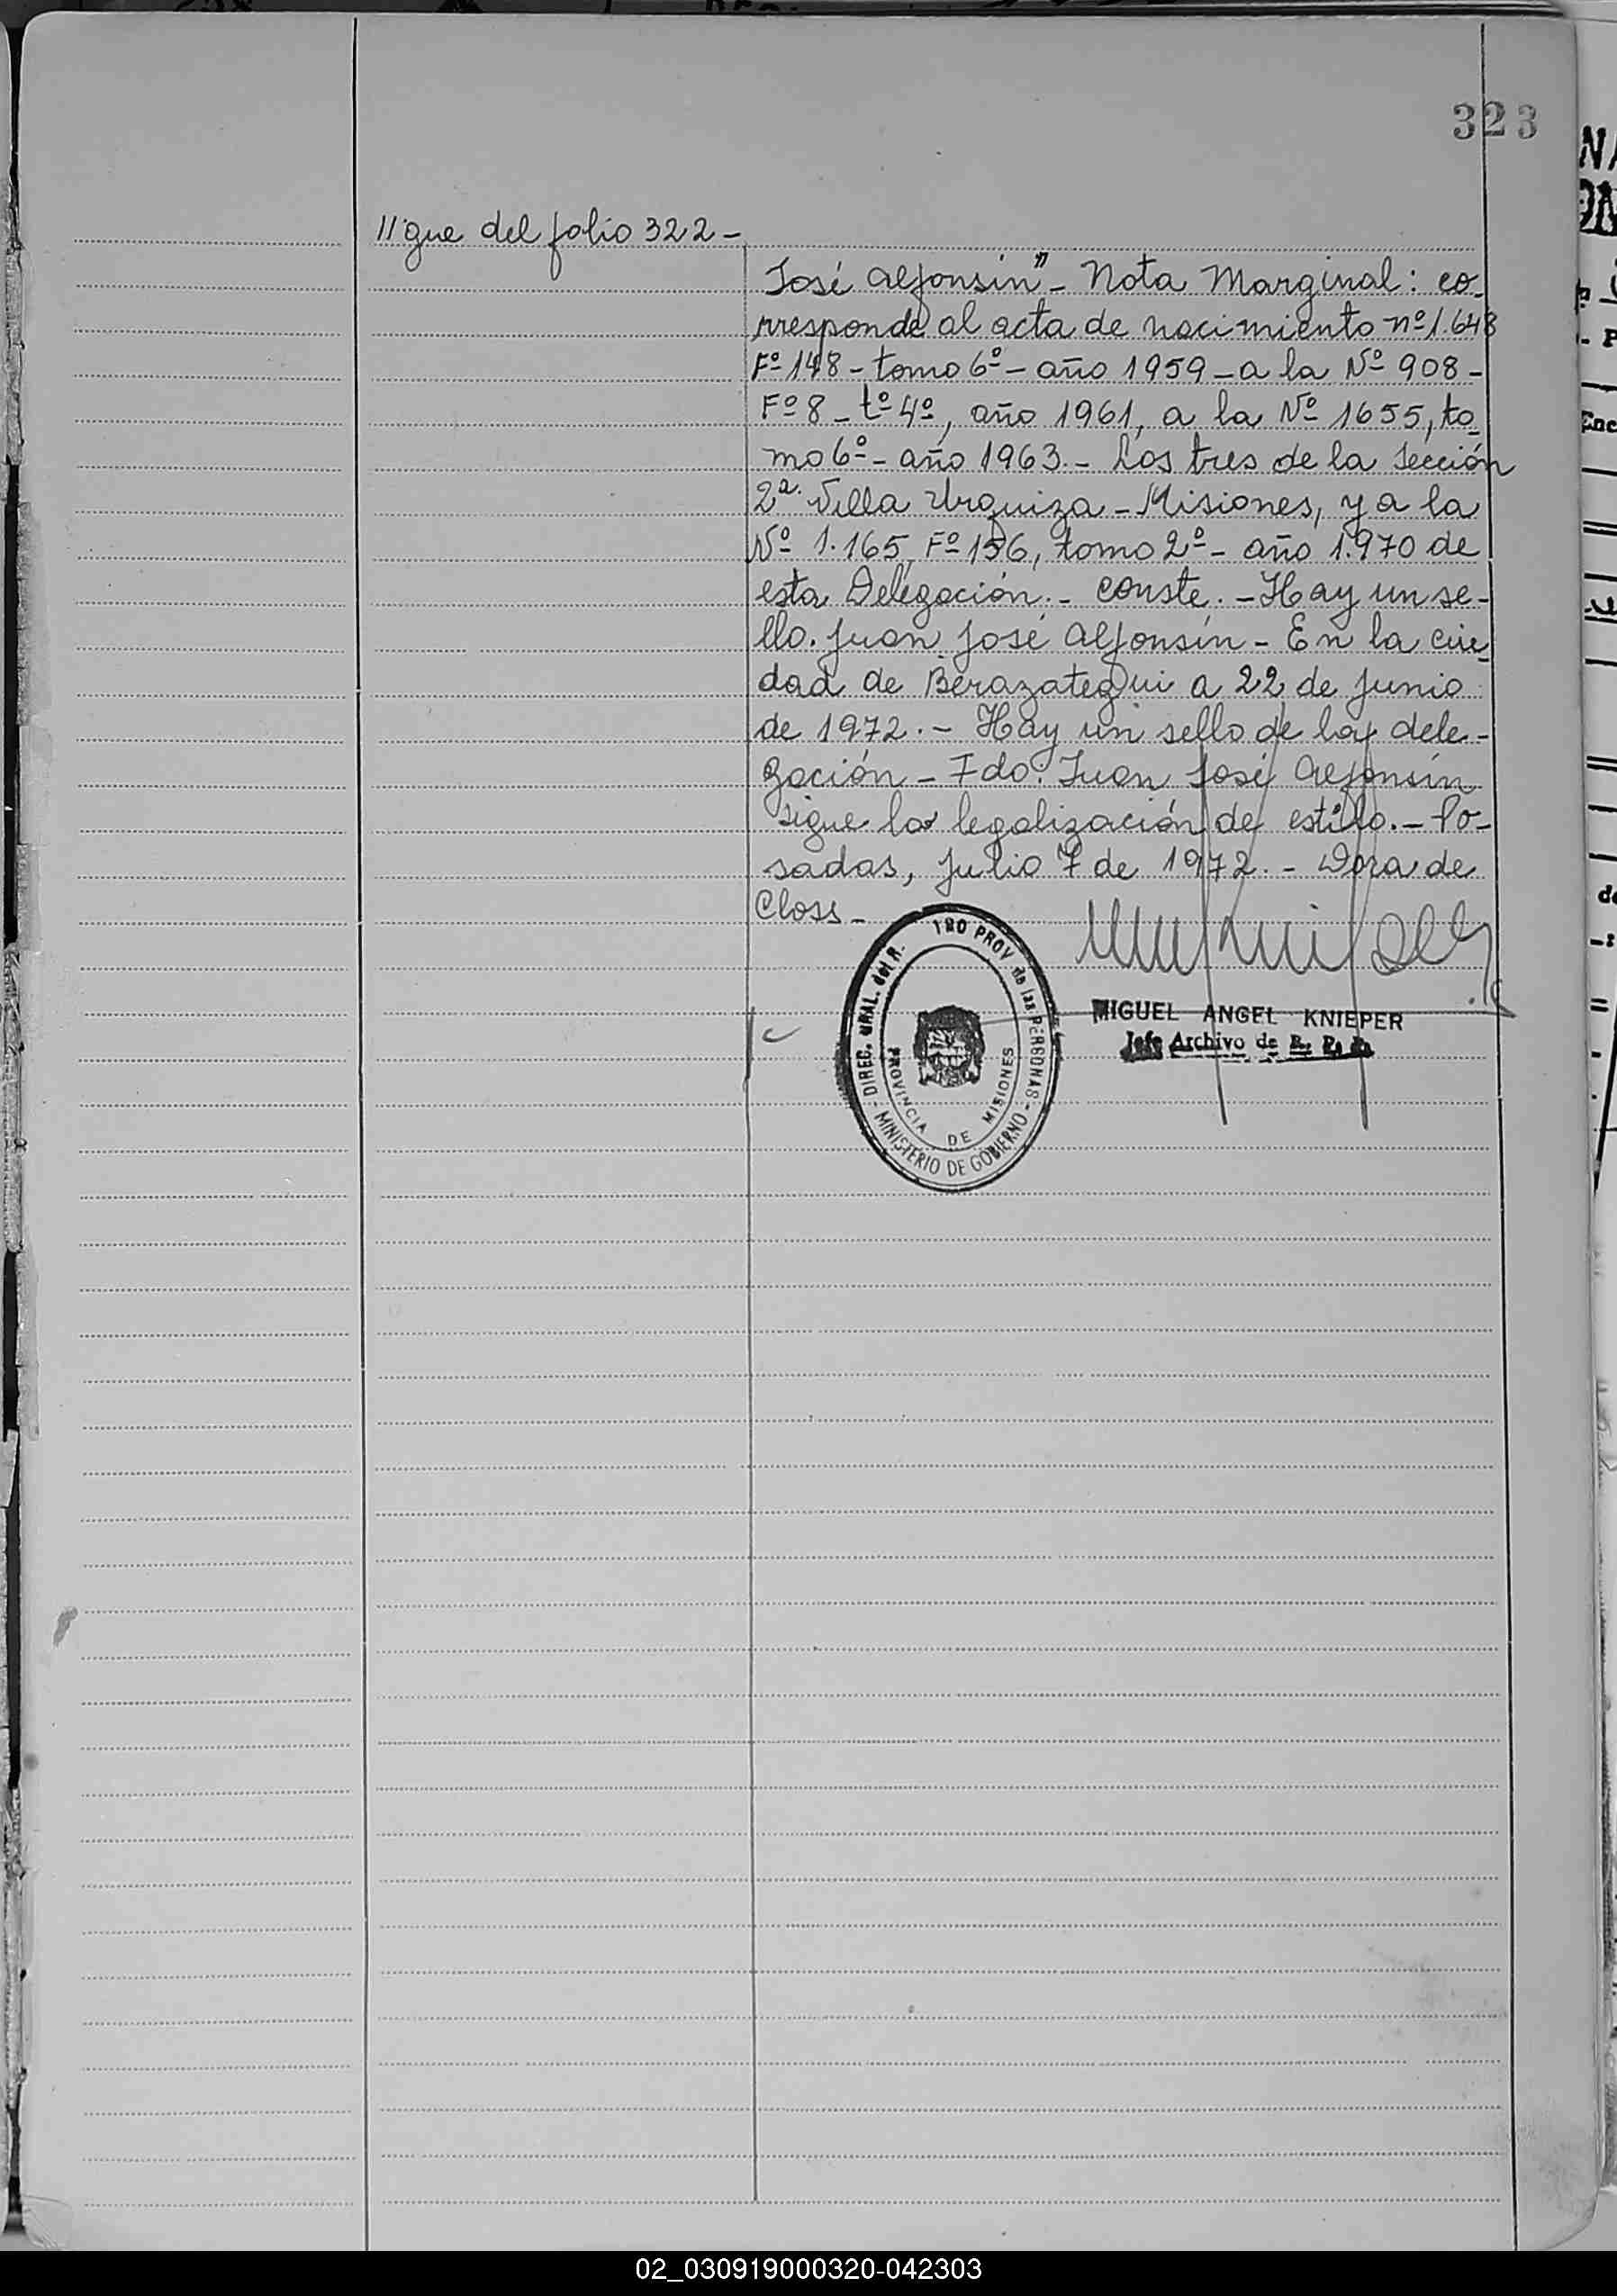 323
//gue del folio 322-
José Alfonsín"- Nota Marginal: co-
rresponde al acta de nacimiento nº1.648
Fº 148 - tomo 6º - año 1959 - a la Nº 908 -
Fº 8 - tº 4º, año 1961, a la Nº 1655, to-
mo 6º - año 1963.- Los tres de la Sección
2ª. Villa Urquiza - Misiones, y a la
Nº 1.165, Fº 156, tomo 2º - año 1.970 de
esta Delegación.- conste. - Hay un se-
llo. Juan José Alfonsín - En la ciu-
dad de Berazategui a 22 de Junio
de 1972.- Hay un sello de la dele-
gación - Fdo. Juan José Alfonsín
sigue la legalización de estilo.- Po-
sadas, Julio 7 de 1972.- Dora de
Closs -
DIREC. GRAL. del R. PROV de las PERSONAS
MINISTERIO DE GOBIERNO
PROVINCIA DE MISIONES
MIGUEL ANGEL KNIEPER
Jefe Archivo de R. P.
02_030919000320-042303